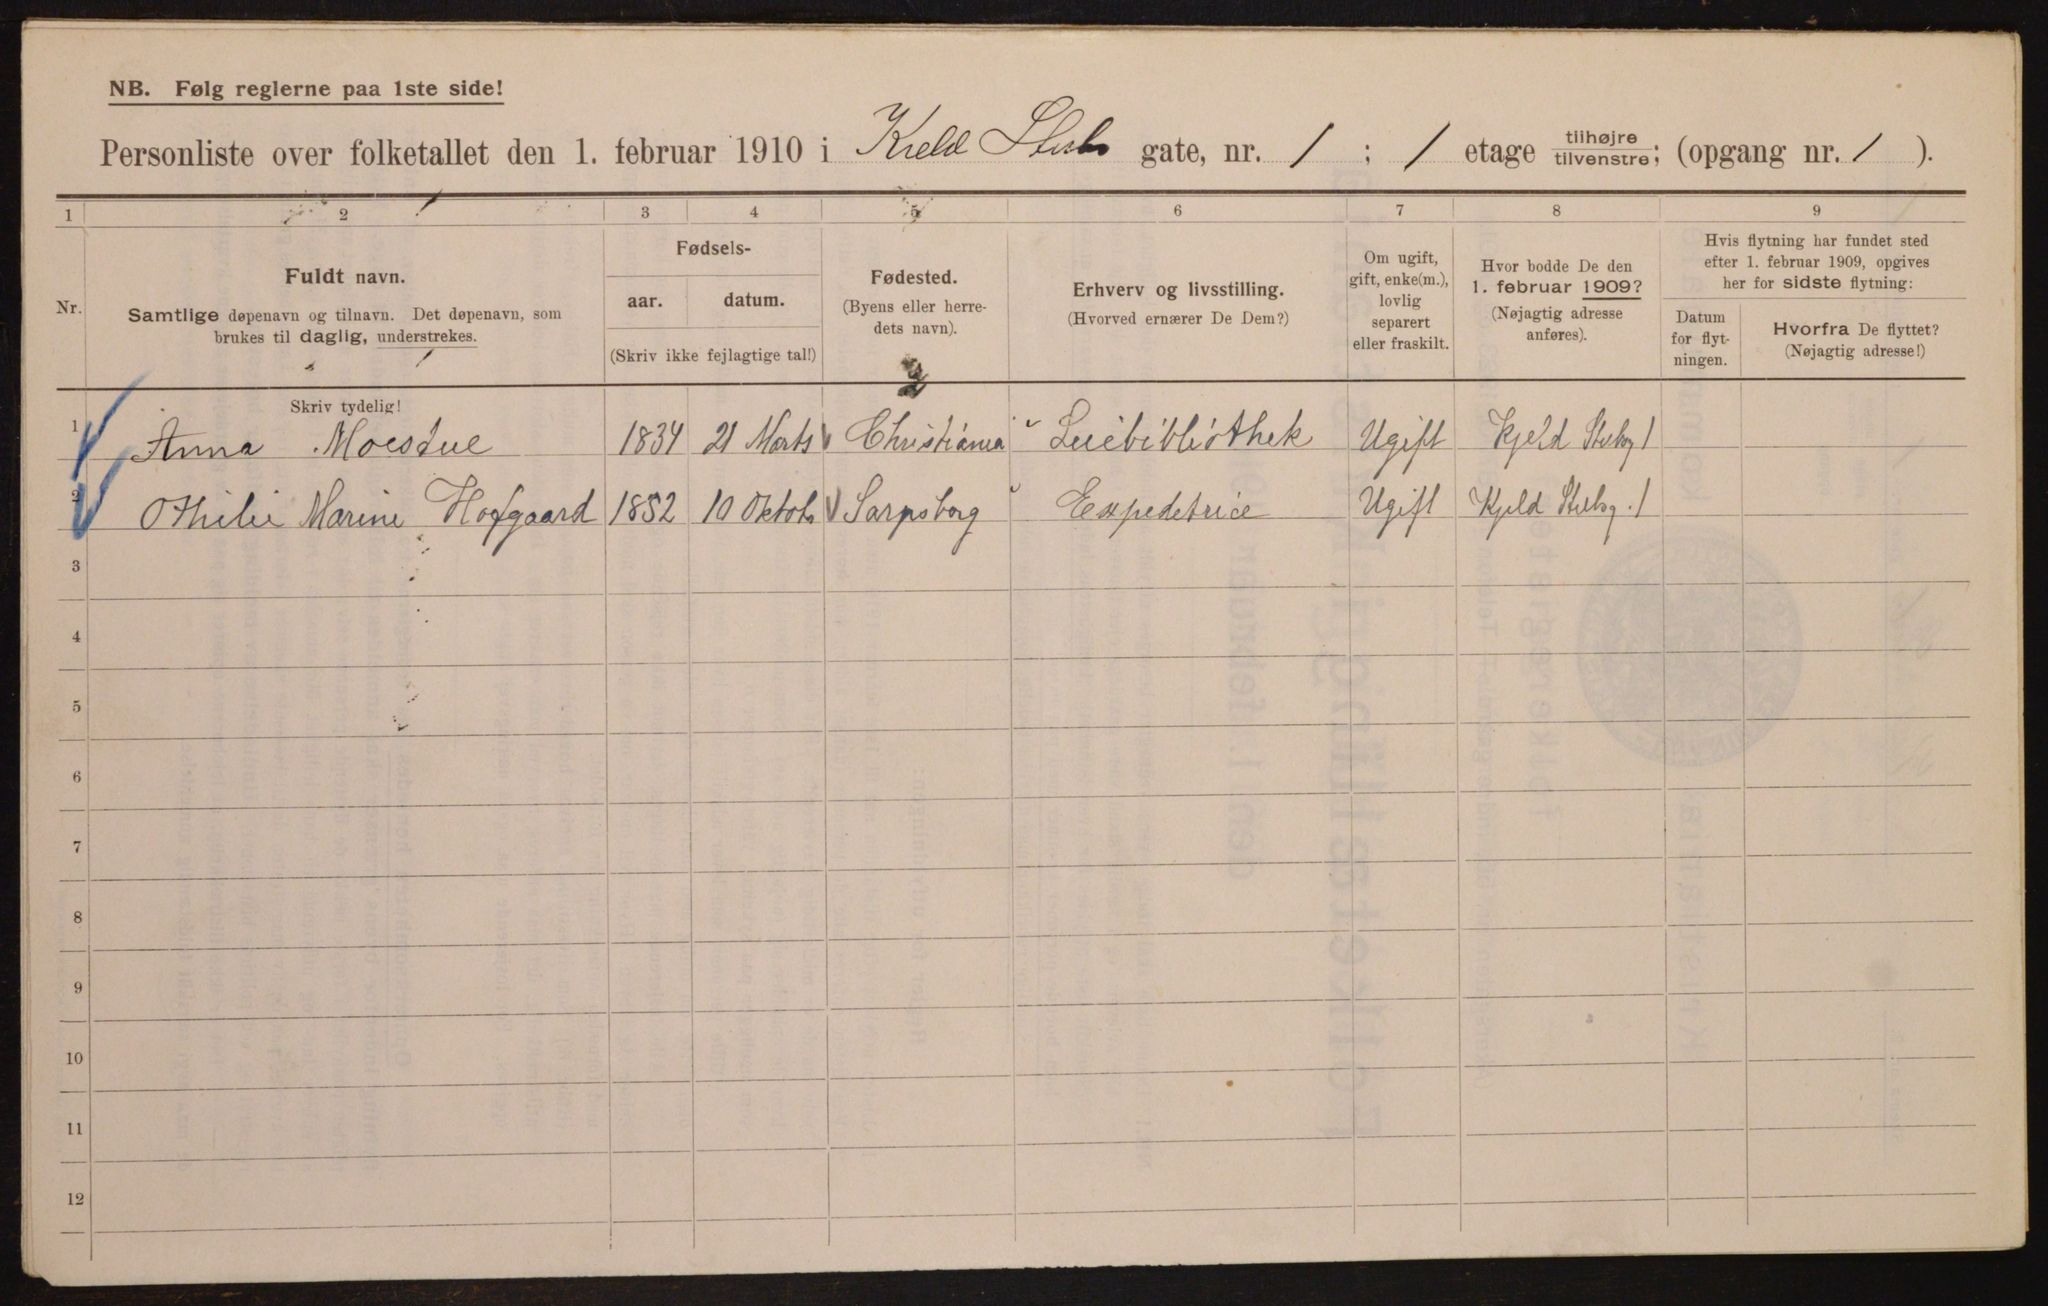 NB. Følg reglerne paa 1ste side!
Personliste over folketallet den 1. februar 1910 i Kield Stubs gate, nr. 1 ; 1 etage tilhøjre tilvenstre; (opgang nr. 1 ).
1 2 3 4 5 6 7 8 9
Nr.
Fuldt navn.
Samtlige døpenavn og tilnavn. Det døpenavn, som
brukes til daglig, understrekes.
Skriv tydelig!
Fødsels-
aar. datum.
(Skriv ikke fejlagtige tal!)
Fødested.
(Byens eller herre-
dets navn).
Erhverv og livsstilling.
(Hvorved ernærer De Dem?)
Om ugift,
gift, enke(m.),
lovlig
separert
eller fraskilt.
Hvor bodde De den
1. februar 1909?
(Nøjagtig adresse
anføres).
Hvis flytning har fundet sted
efter 1. februar 1909, opgives
her for sidste flytning:
Datum
for flyt-
ningen.
Hvorfra De flyttet?
(Nøjagtig adresse!)
1 Anna Moestue 1834 21 Marts Christiania Leiebibliothek Ugift Kjeld Stubsg 1
2 Othilie Marine Hofgaard 1852 10 Oktob Sarpsborg Expeditrice Ugift Kjeld Stubsg. 1
3
4
5
6
7
8
9
10
11
12